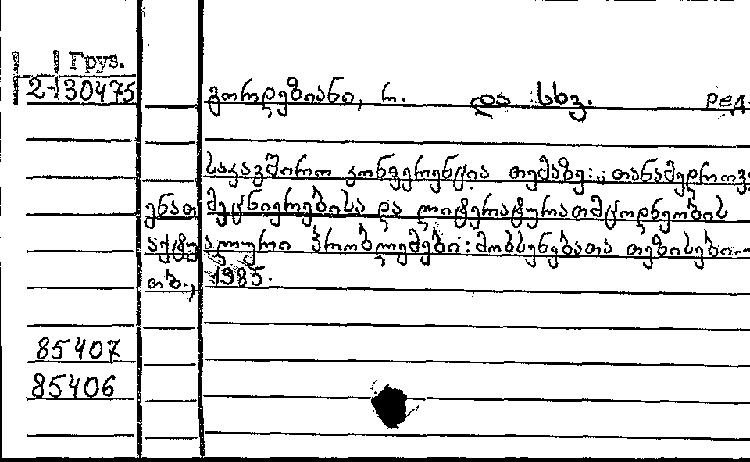 Груз.
2-130475
გორდეზიანი, რ. და სხვ. ред
საკავშირო კონფერენცია თემაზე: "თანამედროვე
ენათმეცნიერებისა და ლიტერატურათმცოდნეობის
აქტუალური პრობლემები: მოხსენებათა თეზისები.-
თბ., 1985.
85407
85406